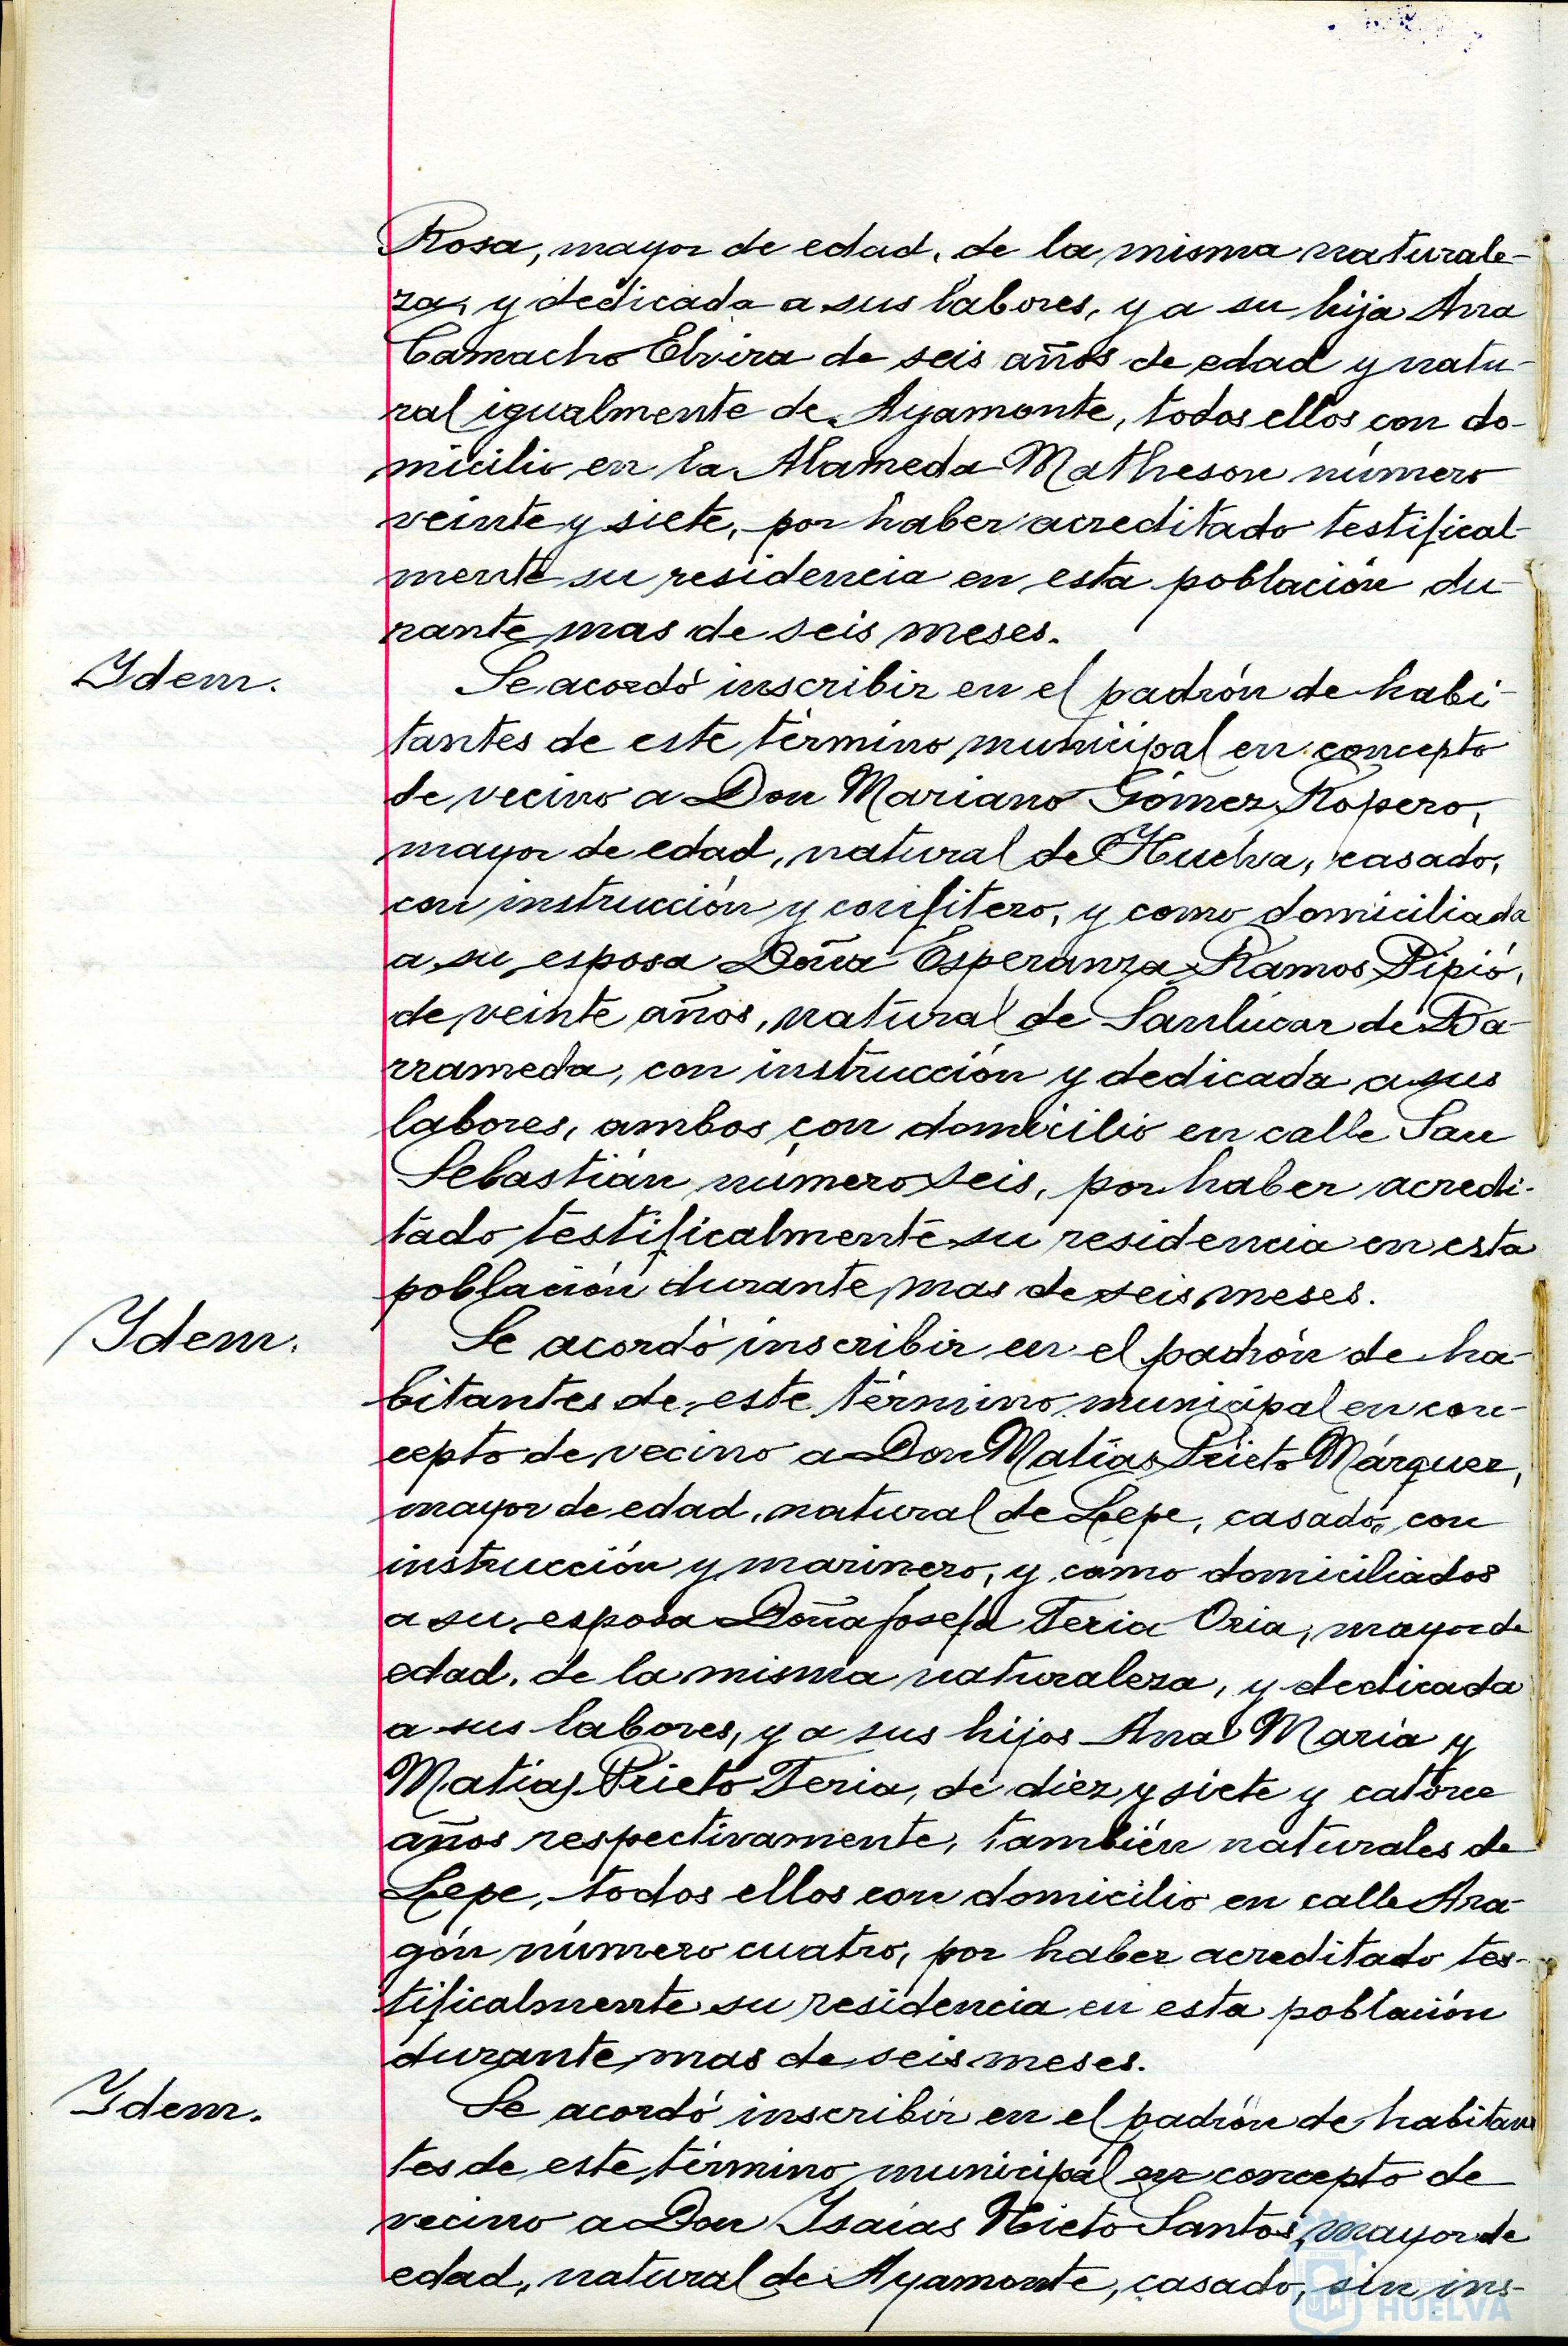 Rosa, mayor de edad, de la misma naturale-
za, y dedicada a sus labores, y a su hija Ana
Camacho Elvira de seis años de edad y natu-
ral igualmente de Ayamonte, todos ellos con do-
micilio en la Alameda Matheson número
veinte y siete, por haber acreditado testifical-
mente su residencia en esta población du-
rante mas de seis meses.
Ydem.
Se acordó inscribir en el padrón de habi-
tantes de este término municipal en concepto
de vecino a Don Mariano Gómez Ropero,
mayor de edad, natural de Huelva, casado,
con instrucción y confitero, y como domiciliada
a su esposa Doña Esperanza Ramos Pipió,
de veinte años, natural de Sanlúcar de Ba-
rrameda, con instrucción y dedicada a sus
labores, ambos con domicilio en calle San
Sebastián número seis, por haber acredi-
tado testificalmente su residencia en esta
población durante mas de seis meses.
Ydem.
Se acordó inscribir en el padrón de ha-
bitantes de este término municipal en con-
cepto de vecino a Don Matías Prieto Márquez,
mayor de edad, natural de Lepe, casado, con
instrucción y marinero, y como domiciliados
a su esposa Doña Josefa Feria Oria, mayor de
edad, de la misma naturaleza, y dedicada
a sus labores, y a sus hijos Ana María y
Matías Prieto Feria, de diez y siete y catorce
años respectivamente, también naturales de
Lepe, todos ellos con domicilio en calle Ara-
gón número cuatro, por haber acreditado tes-
tificalmente su residencia en esta población
durante mas de seis meses.
Ydem.
Se acordó inscribir en el padrón de habitan
tes de este término municipal en concepto de
vecino a Don Ysaías Nieto Santos, mayor de
edad, natural de Ayamonte, casado, sin ins-
HUELVA